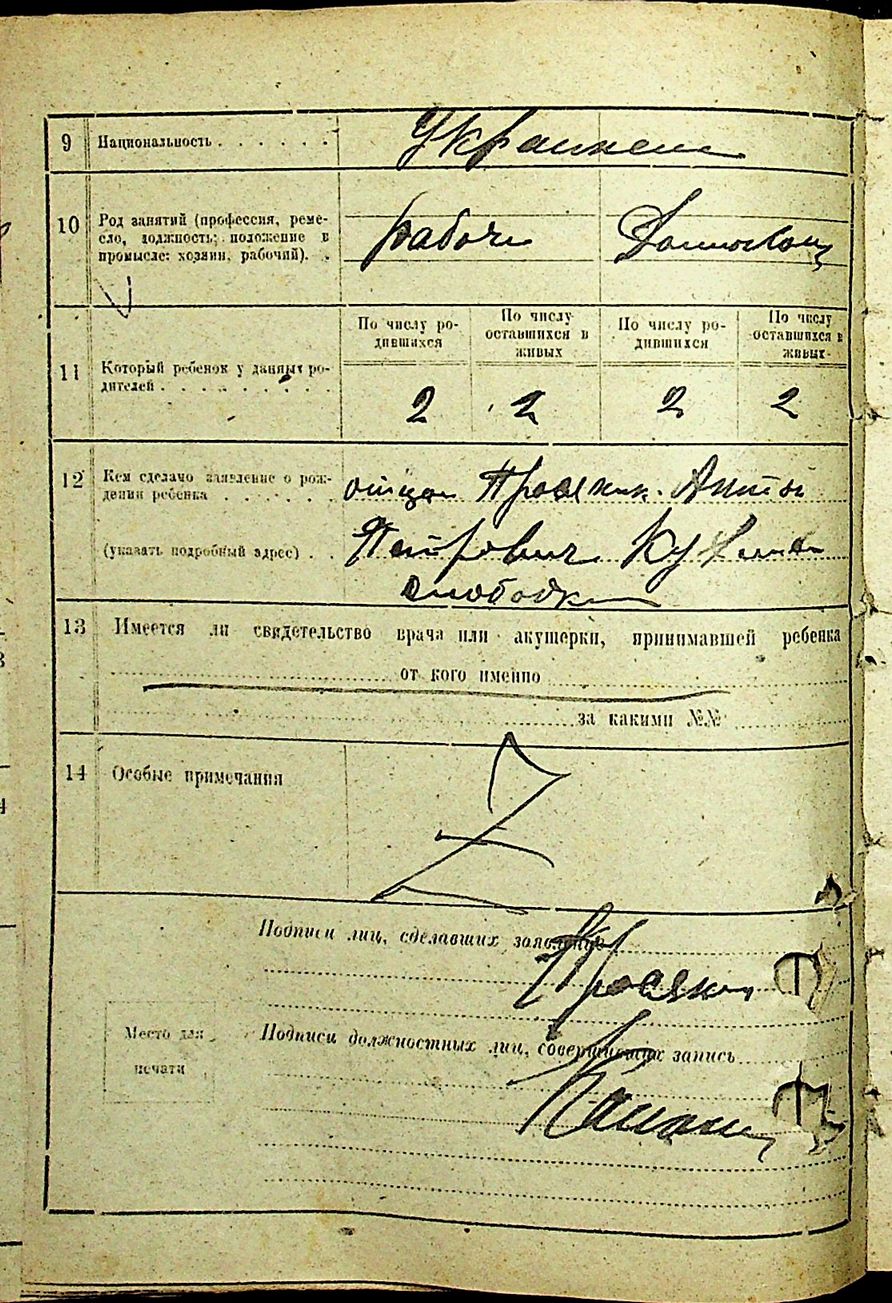 9 Национальность . . . . . .
10 Род занятий (профессия, реме-
сло, должность; положение в
промысле: хозяин, рабочий). .
рабоч
11 Который ребенок у данных ро-
дителей . . . . . . . .
По числу ро-
дившихся
По числу
оставшихся в
живых
По числу ро-
дившихся
По числу
оставшихся в
живых
2 2 2 2
12 Кем сделано заявление о рож-
дении ребенка . . . . . .
отцом Просяник
(указать подробный адрес) . .
Петрович
слободка
13 Имеется ли свидетельство врача или акушерки, принимавшей ребенка
от кого именно
за какими №№
14 Особые примечания
Z
Подписи лиц, сделавших заявление
Просяник
Место для
печати
Подписи должностных лиц, совершивших запись